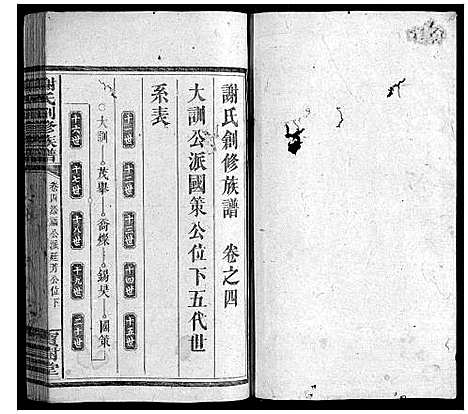 謝氏創修族譜 卷之四
大訓公派國策公位下五代世
系表
十一世 十二世 十三世 十四世 十五世
大訓 茂舉 喬燦 錫旻 國策
十六世 十七世 十八世 十九世 二十世
謝氏創修族譜
卷四
公派廷芳公位下
寶樹堂